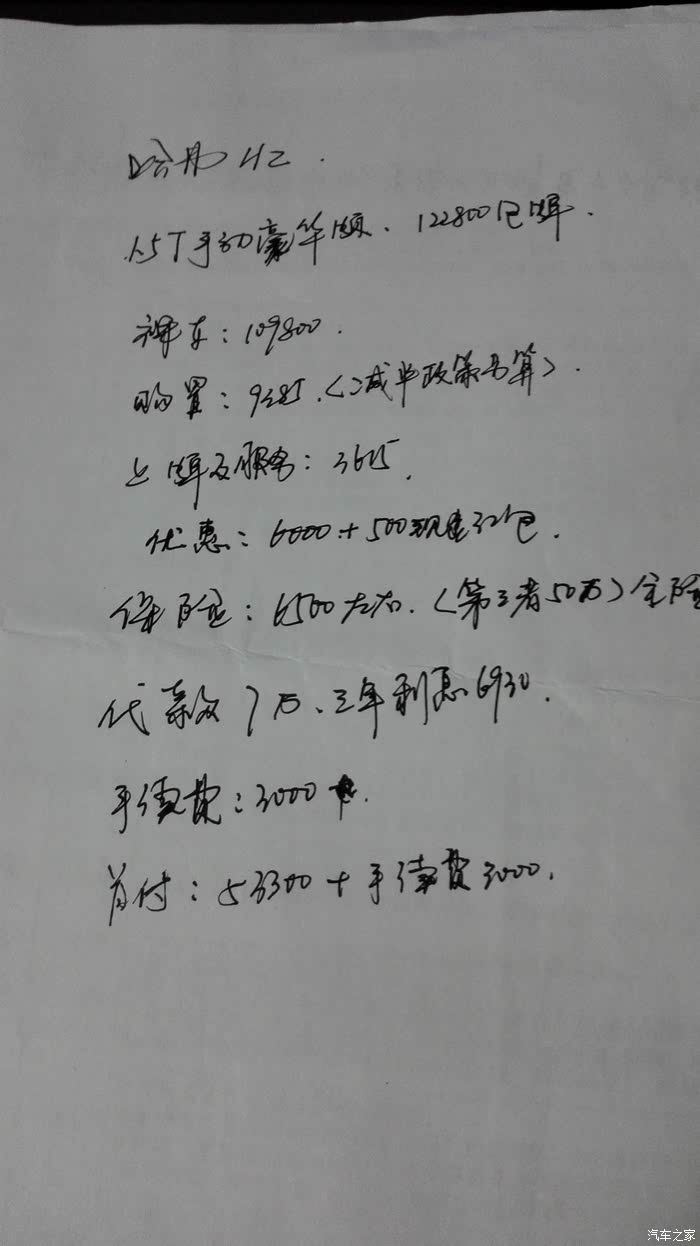 哈弗H2.
1.5T手动豪华版. 122800包牌.
裸车:109800.
购置:9385.(减半政策另算).
上牌及服务:3615.
优惠:6000+500现金红包.
保险:6500左右.(第三者50万)全险
代款7万、三年利息6930.
手续费:3000
首付:53300+手续费3000.
汽车之家